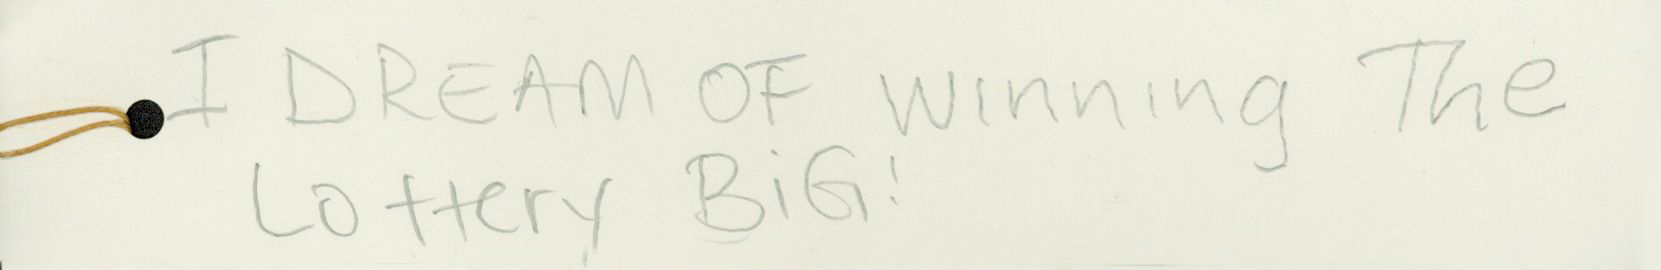 I DREAM OF WINNING The
Lottery BiG!